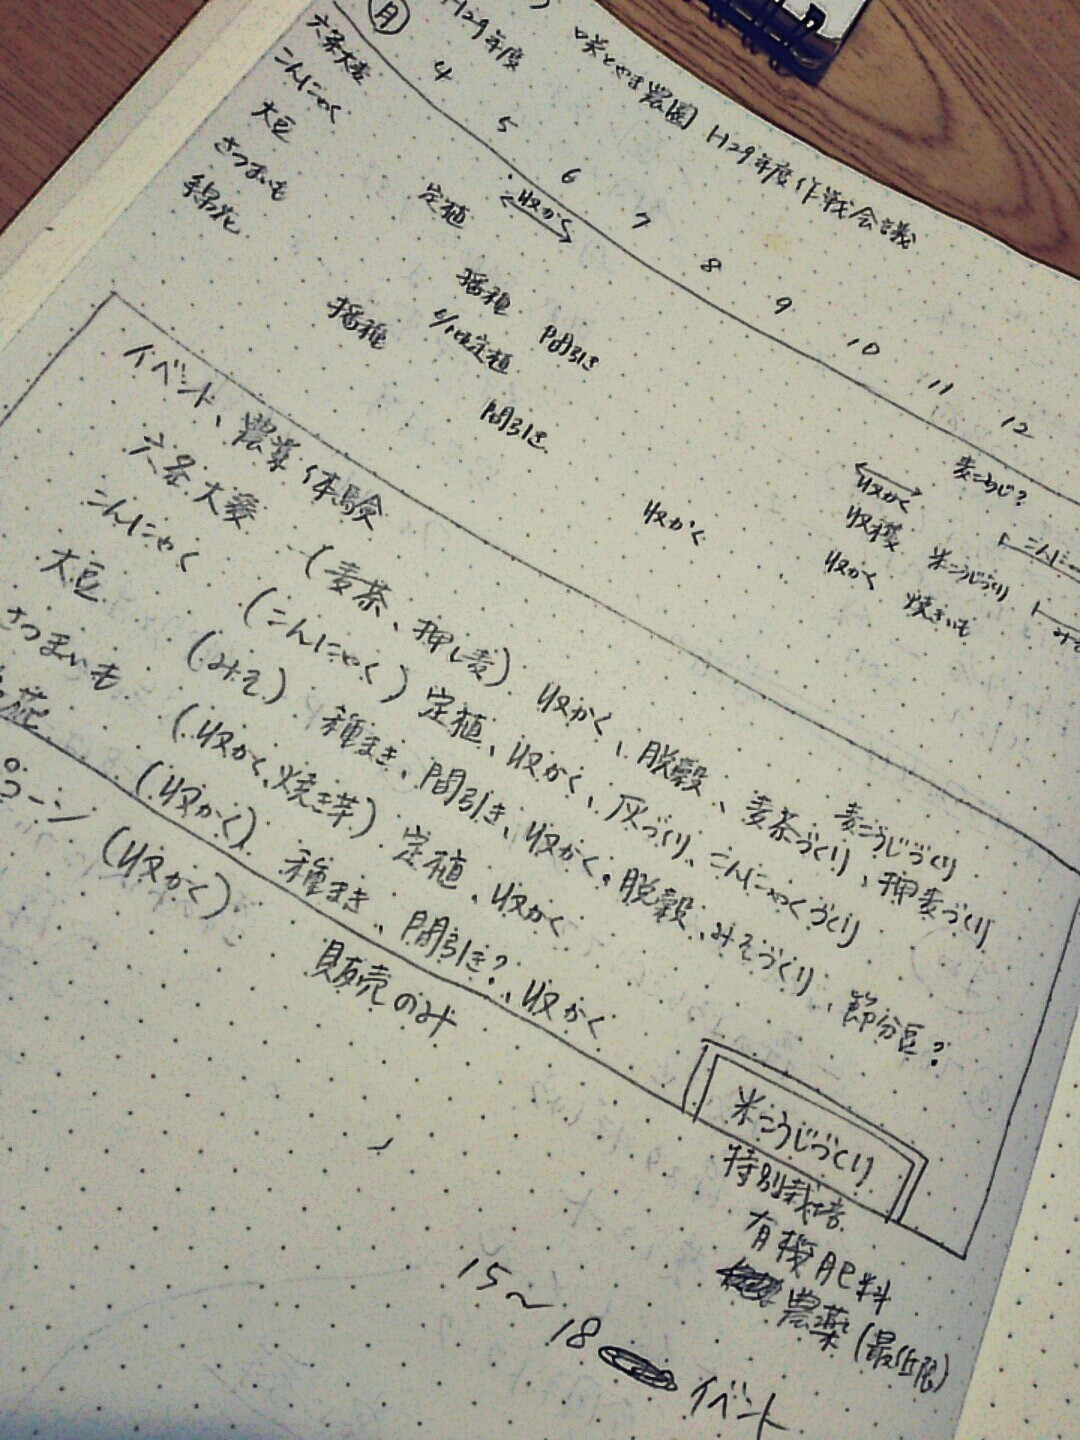 咲とやま農園 H29年度作戦会議
H29年度
月 4 5 6 7 8 9 10 11 12
六条大麦 収かく 麦こうじ?
こんにゃく 定植 収かく こんに
大豆 播種 間引き 収穫 米こうじづくり み
さつまいも 定植 収かく 収かく 焼きいも
綿花 播種 間引き
イベント、農業体験
六条大麦 (麦茶、押し麦) 収かく、脱穀、麦茶づくり、押麦づくり
麦こうじづくり
こんにゃく (こんにゃく) 定植、収かく、灰づくり、こんにゃくづくり
大豆 (みそ) 種まき、間引き、収かく、脱穀、みそづくり、節分豆?
さつまいも (収かく、焼き芋) 定植、収かく
花 (収かく) 種まき、間引き?、収かく
コーン (収かく) 販売のみ
米こうじづくり
特別栽培
有機肥料
農薬(最低限)
15~18 イベント